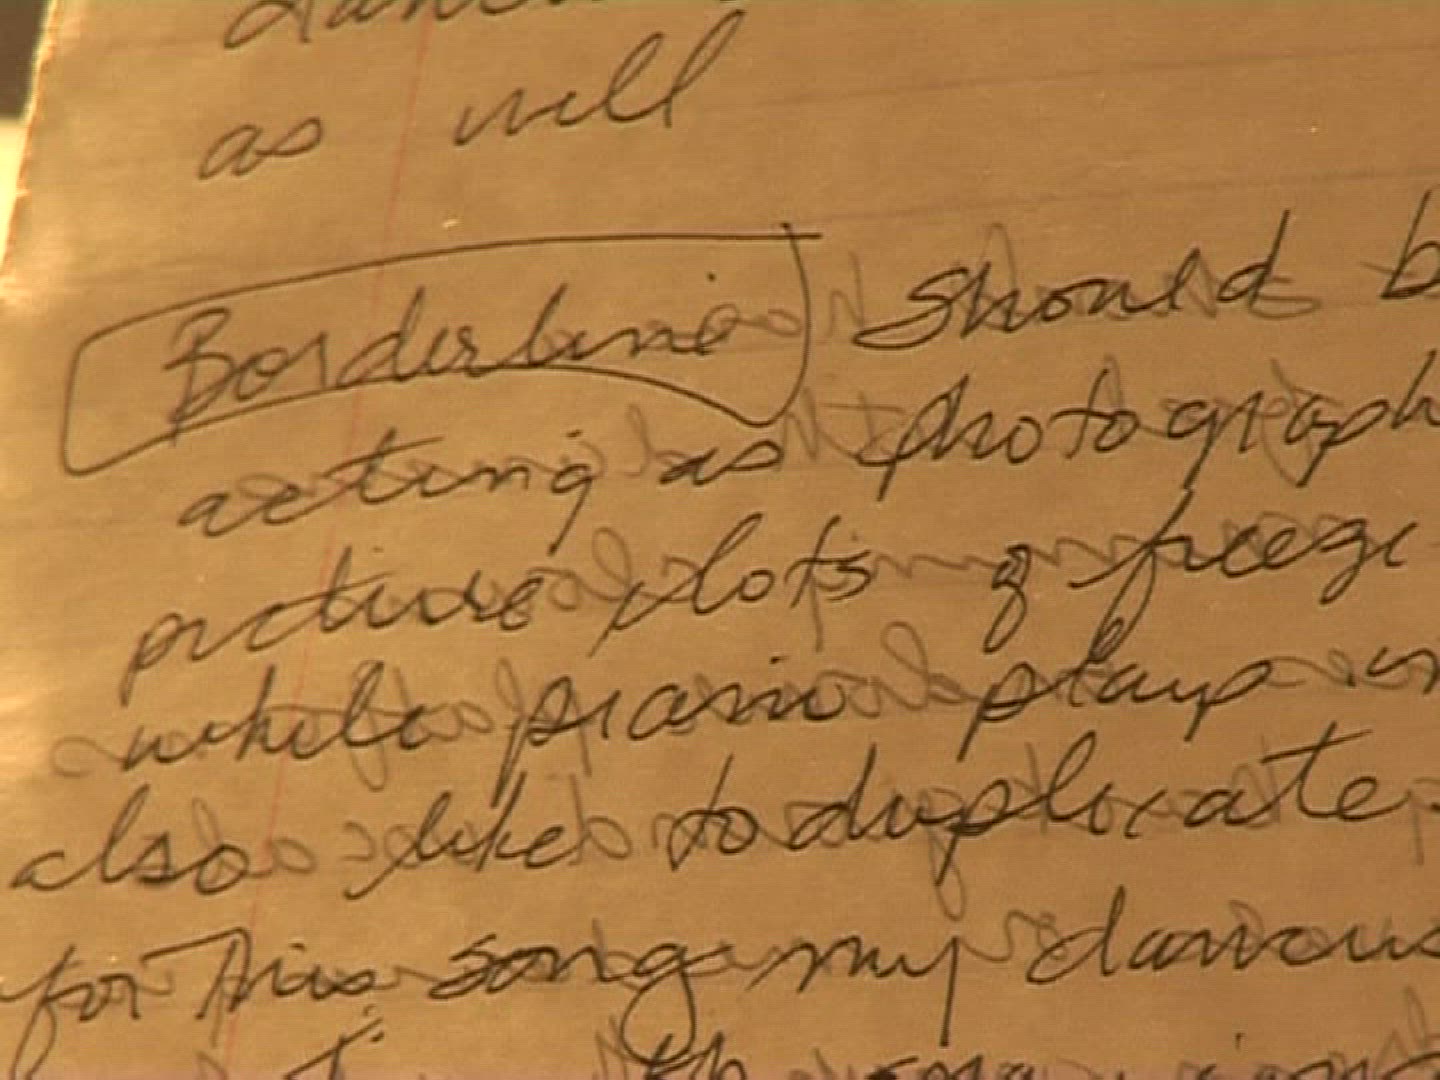 as well
Borderline should b
acting as photograph
picture lots of freeze
while piano plays in
also like to duplicate
for this song my